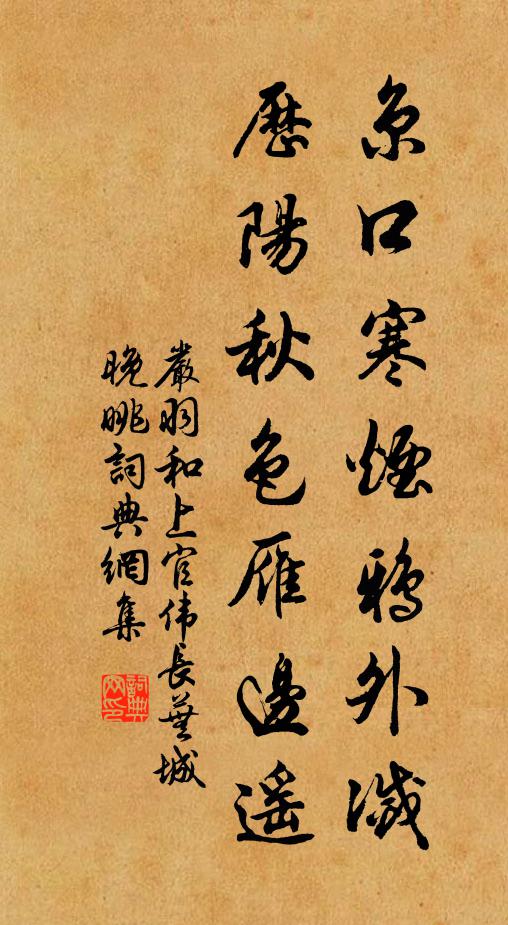 京口寒煙鴉外滅
歷陽秋色雁邊遥
嚴羽和上官伟長蕪城
晚眺詞典網集
詞典
网印